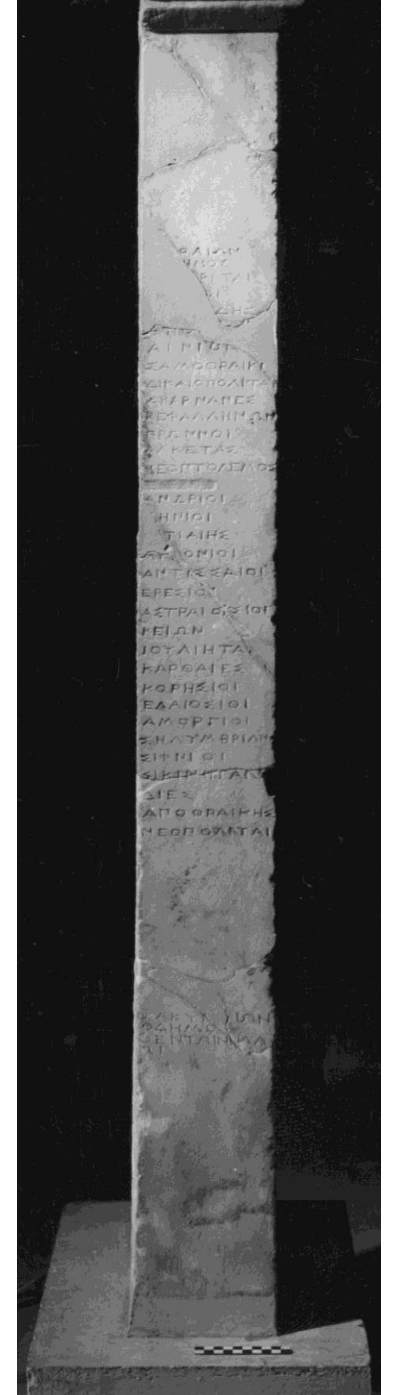 ΑΙΩΝ
ΗΜΟΣ
ΡΙΤΑΙ
ΟΙ
ΔΗΣ
ΑΠΟ
ΑΙΝΙΟΙ
ΣΑΜΟΘΡΑΙΚΕ
ΔΙΚΑΙΟΠΟΛΙΤΑΙ
ΑΚΑΡΝΑΝΕΣ
ΚΕΦΑΛΛΗΝΩΝ
ΠΡΩΝΝΟΙ
ΑΛΚΕΤΑΣ
ΝΕΟΠΤΟΛΕΜΟΣ
ΑΝΔΡΙΟΙ
ΗΝΙΟΙ
ΤΙΑΙΗΣ
ΜΥΚΟΝΙΟΙ
ΑΝΤΙΣΣΑΙΟΙ
ΕΡΕΣΙΟΙ
ΑΣΤΡΑΙΟΣΙΟΙ
ΚΕΙΩΝ
ΙΟΥΛΙΗΤΑΙ
ΚΑΡΘΑΙΕΣ
ΚΟΡΗΣΙΟΙ
ΕΛΑΙΟΣΙΟΙ
ΑΜΟΡΓΙΟΙ
ΣΗΛΥΜΒΡΙΑΝ
ΣΙΦΝΙΟΙ
ΣΙΚΙΝΗΤΑΙ
ΔΙΕΣ
ΑΠΟΘΡΑΙΚΗΣ
ΝΕΟΠΟΛΙΤΑΙ
ΖΑΚΥΝΘΙΩΝ
ΟΔΗΜΟΣ
ΟΕΝΤΩΙΝΗΛΛ